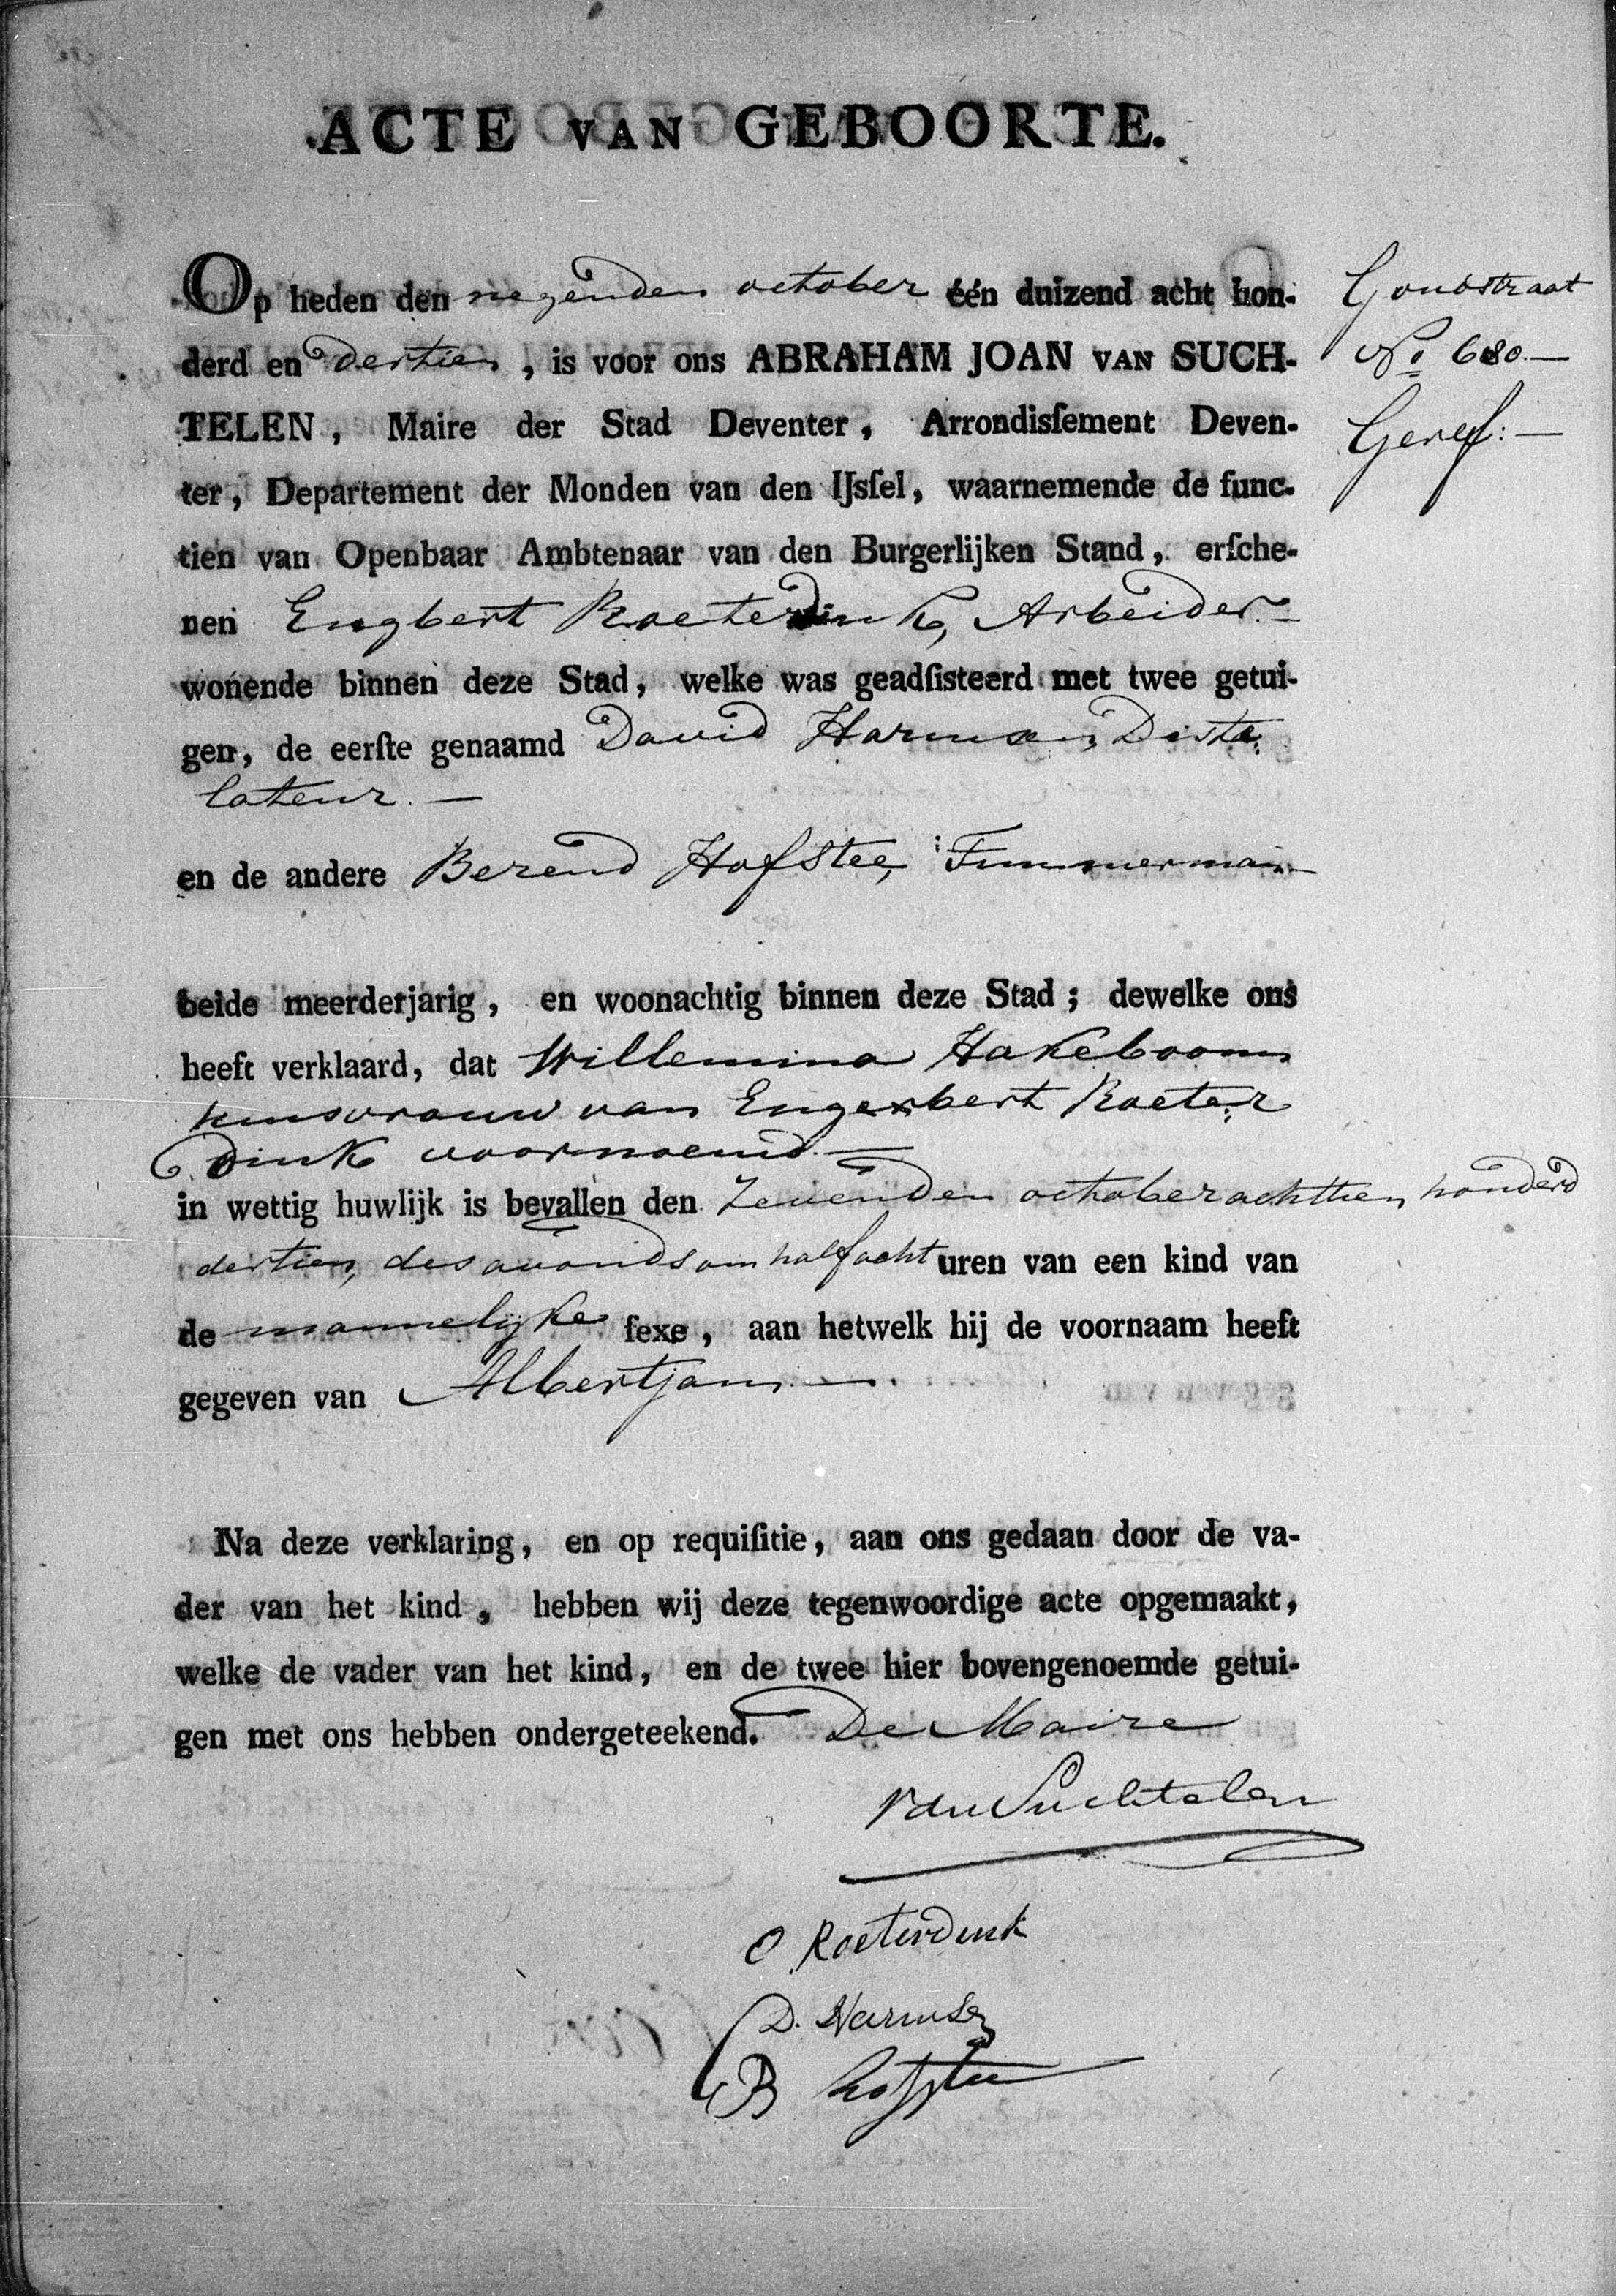 ACTE VAN GEBOORTE.
Op heden den negenden october één duizend acht hon-
derd en dertien, is voor ons ABRAHAM JOAN VAN SUCH-
TELEN, Maire der Stad Deventer, Arrondisſement Deven-
ter, Departement der Monden van den IJsſel, waarnemende de func-
tien van Openbaar Ambtenaar van den Burgerlijken Stand, erſche-
nen Engbert Roeterdink, Arbeider.-
wonende binnen deze Stad, welke was geadſisteerd met twee getui-
gen, de eerſte genaamd David Harmsen, Diste:
lateur.—
en de andere Berend Hofstee, Timmerman
beide meerderjarig, en woonachtig binnen deze Stad; dewelke ons
heeft verklaard, dat Willemina Hakeboom
huisvrouw van Engerbert Roeter
dink voornoemd.—
in wettig huwlijk is bevallen den Zevenden october achttien honderd
dertien, des avonds om half acht uren van een kind van
de mannelijke ſexe, aan hetwelk hij de voornaam heeft
gegeven van Albertjan.—
Na deze verklaring, en op requiſitie, aan ons gedaan door de va-
der van het kind, hebben wij deze tegenwoordige acte opgemaakt,
welke de vader van het kind, en de twee hier bovengenoemde getui-
gen met ons hebben ondergeteekend. De Maire
Van Suchtelen
Roeterdink
D. Harmsen
B Hofstee
Goudstraat
No 680.—
Geref:—